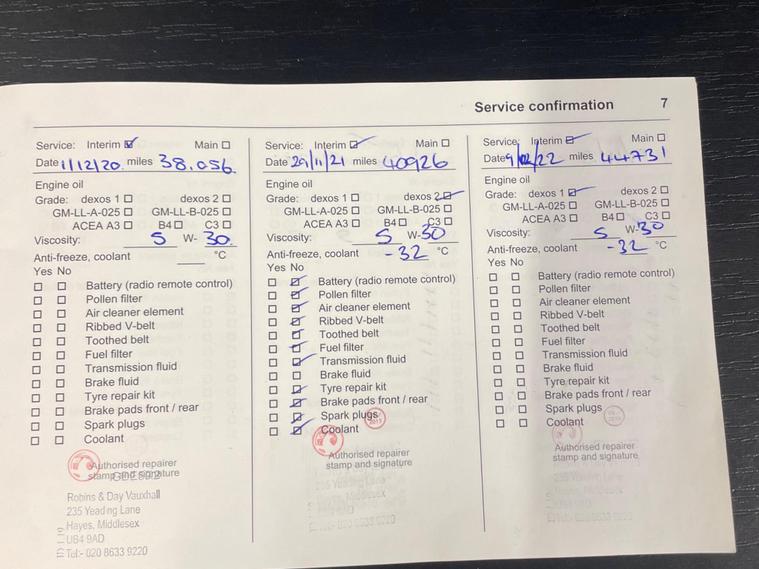 Service confirmation 7
Service: Interim ☑ Main ☐
Date 1/12/20. miles 38,056.
Engine oil
Grade: dexos 1 ☐ dexos 2 ☐
GM-LL-A-025 ☐ GM-LL-B-025 ☐
ACEA A3 ☐ B4 ☐ C3 ☐
Viscosity: 5 W- 30.
Anti-freeze, coolant °C
Yes No
☐ ☐ Battery (radio remote control)
☐ ☐ Pollen filter
☐ ☐ Air cleaner element
☐ ☐ Ribbed V-belt
☐ ☐ Toothed belt
☐ ☐ Fuel filter
☐ ☐ Transmission fluid
☐ ☐ Brake fluid
☐ ☐ Tyre repair kit
☐ ☐ Brake pads front / rear
☐ ☐ Spark plugs
☐ ☐ Coolant
Authorised repairer
stamp and signature
Robins & Day Vauxhall
235 Yeading Lane
Hayes, Middlesex
UB4 9AD
Tel:- 020 8633 9220
Service: Interim ☑ Main ☐
Date 29/11/21 miles 40926
Engine oil
Grade: dexos 1 ☐ dexos 2 ☑
GM-LL-A-025 ☐ GM-LL-B-025 ☐
ACEA A3 ☐ B4 ☐ C3 ☐
Viscosity: 5 W-30
Anti-freeze, coolant -32 °C
Yes No
☐ ☑ Battery (radio remote control)
☐ ☑ Pollen filter
☐ ☑ Air cleaner element
☐ ☑ Ribbed V-belt
☐ ☑ Toothed belt
☐ ☑ Fuel filter
☐ ☑ Transmission fluid
☐ ☐ Brake fluid
☐ ☑ Tyre repair kit
☐ ☑ Brake pads front / rear
☐ ☑ Spark plugs
☐ ☑ Coolant
Authorised repairer
stamp and signature
Service: Interim ☑ Main ☐
Date 9/02/22 miles 44731
Engine oil
Grade: dexos 1 ☑ dexos 2 ☐
GM-LL-A-025 ☐ GM-LL-B-025 ☐
ACEA A3 ☐ B4 ☐ C3 ☐
Viscosity: 5 W-30
Anti-freeze, coolant -32 °C
Yes No
☐ ☐ Battery (radio remote control)
☐ ☐ Pollen filter
☐ ☐ Air cleaner element
☐ ☐ Ribbed V-belt
☐ ☐ Toothed belt
☐ ☐ Fuel filter
☐ ☐ Transmission fluid
☐ ☐ Brake fluid
☐ ☐ Tyre repair kit
☐ ☐ Brake pads front / rear
☐ ☐ Spark plugs
☐ ☐ Coolant
Authorised repairer
stamp and signature